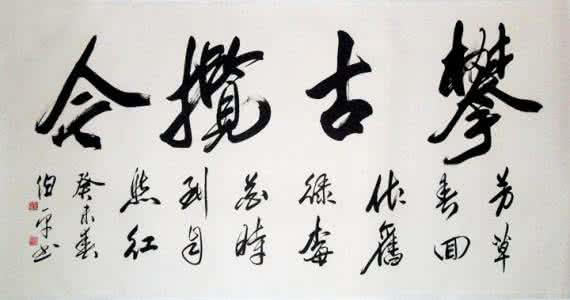 攀古攬今
芳草
春回
依舊
綠梅
花時
到自
然紅
癸未春
伯平书